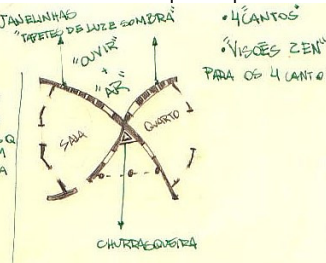 JANELINHAS
"TAPETES DE LUZ E SOMBRA"
"OUVIR"
+
"AR"
• 4 "CANTOS"
• "VISÕES ZEN"
PARA OS 4 CANTO
SALA
QUARTO
CHURRASQUEIRA